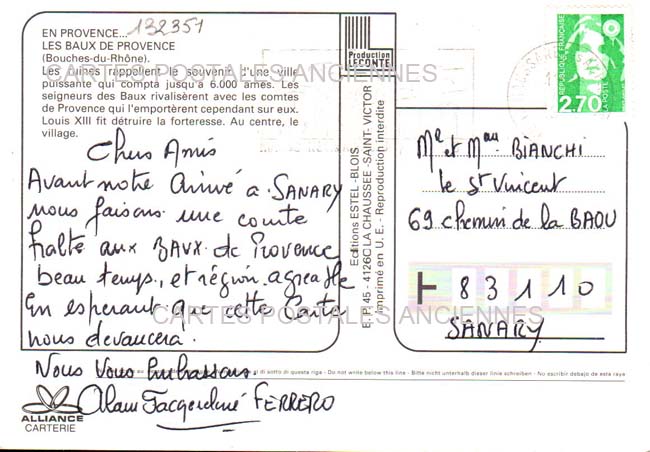 132351
EN PROVENCE...
LES BAUX DE PROVENCE
(Bouches-du-Rhône).
Les ruines rappellent le souvenir d'une ville
puissante qui compta jusqu'à 6.000 âmes. Les
seigneurs des Baux rivalisèrent avec les comtes
de Provence qui l'emportèrent cependant sur eux.
Louis XIII fit détruire la forteresse. Au centre, le
village.
CARTES POSTALES ANCIENNES
Chers Amis
Avant notre Arrivé à SANARY
nous faisons une courte
halte aux BAUX de Provence
beau temps, et région agréable
En espérant que cette Carte
nous devancera.
Nous Vous Embrassons.
Alain Jacqueline FERRERO
CARTES POSTALES ANCIENNES
ALLIANCE
CARTERIE
Production
LECONTE
Editions ESTEL-BLOIS
E. P. 45 - 41260 LA CHAUSSEE-SAINT-VICTOR
Imprimé en U. E. - Reproduction interdite
REPUBLIQUE FRANÇAISE
2,70
LA POSTE
Mr et Mme BIANCHI
le St Vincent
69 chemin de la BAOU
83110
SANARY
di sotto di questa riga - Do not write below this line - Bitte nicht unterhalb dieser linie schreiben - No escribir debajo de esta raya